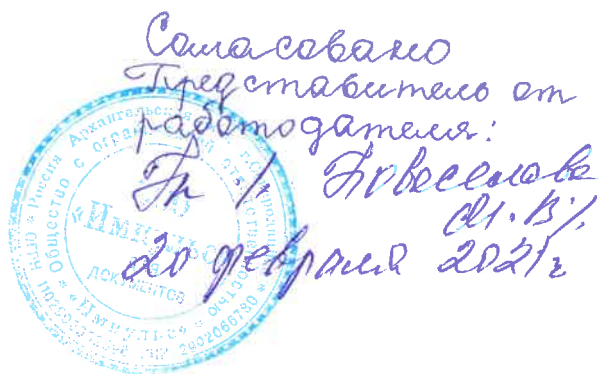 Согласовано
Представитель от
работодателя:
Новоселова
М.В./
20 февраля 2021г
Россия Архангельская
Общество с ограниченной ответственностью
«Импульс»
ДОКУМЕНТОВ
«Импульс»
2902066780